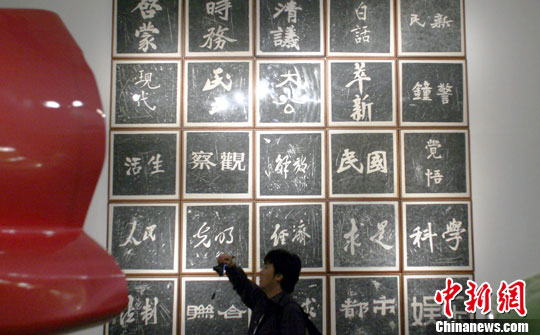 啓蒙
時務
清議
白話
新民
現代
民主
大公
萃新
警鐘
生活
觀察
解放
國民
覺悟
人民
光明
經濟
求是
科學
法制
聯合
求
都市
娛
中新网
Chinanews.com